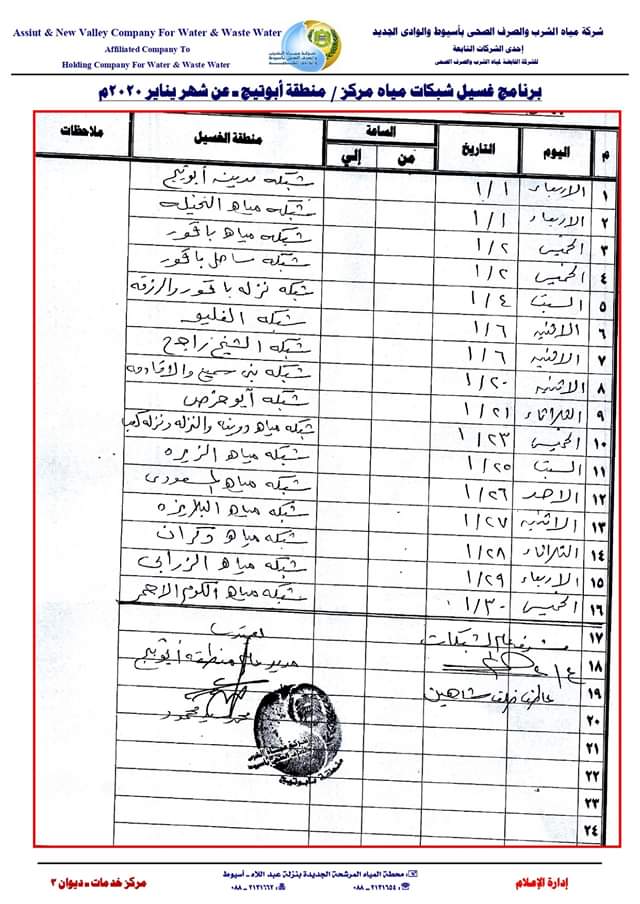 Assiut & New Valley Company For Water & Waste Water
Affiliated Company To
Holding Company For Water & Waste Water
شركة مياه الشرب والصرف الصحى بأسيوط والوادى الجديد
إحدى الشركات التابعة
للشركة القابضة لمياه الشرب والصرف الصحى
برنامج غسيل شبكات مياه مركز / منطقة أبوتيج ـ عن شهر يناير ٢٠٢٠م
م اليوم التاريخ الساعة من إلي منطقة الغسيل ملاحظات
١ الاربعاء ١/١ شبكه مدينه أبوتيج
٢ الاربعاء ١/١ شبكه مياه النخيله
٣ الخميس ١/٢ شبكه مياه باقور
٤ الخميس ١/٢ شبكه ساحل باقور
٥ السبت ١/٤ شبكه نزله باقور والرزقه
٦ الاثنين ١/٦ شبكه
٧ الاثنين ١/٦ شبكه الشيخ راجح
٨ الاثنين ١/٢٠ شبكه بنى سميع والاقادمه
٩ الثلاثاء ١/٢١ شبكه أبوخرص
١٠ الخميس ١/٢٣ شبكه مياه دوينه والنزله ونزله
١١ السبت ١/٢٥ شبكه مياه الزيره
١٢ الاحد ١/٢٦ شبكه مياه المسعودى
١٣ الاثنين ١/٢٧ شبكه مياه البلايزه
١٤ الثلاثاء ١/٢٨ شبكه مياه دكران
١٥ الاربعاء ١/٢٩ شبكه مياه الزرابى
١٦ الخميس ١/٣٠ شبكه مياه الكوم الاحمر
١٧ الشبكات
١٨ مدير عام منطقة أبوتيج
١٩ خلف شاهين
٢٠ محمد سيد محمود
٢١
٢٢
٢٣
٢٤
إدارة الإعلام
محطة المياه المرشحة الجديدة بنزلة عبد اللاه ـ أسيوط
٠٨٨ ـ ٢١٢١٦٥٤ ٠٨٨ ـ ٢١٢١٦٦٢
مركز خدمات ـ ديوان ٣